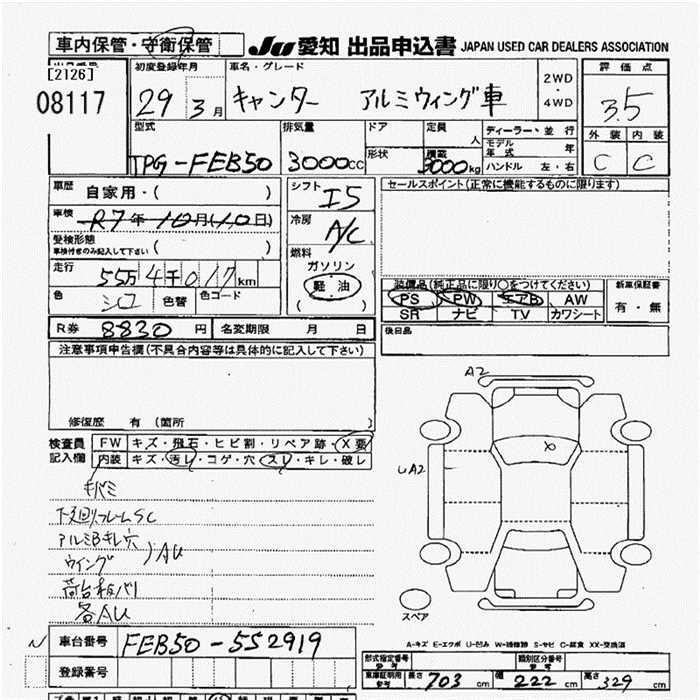 車内保管・守衛保管
JU 愛知 出品申込書 JAPAN USED CAR DEALERS ASSOCIATION
出品番号
[2126]
08117
初度登録年月
29 3月
車名・グレード
キャンター アルミウィング車
2WD
・
4WD
評価点
3.5
外装 内装
C C
型式
TPG-FEB50
排気量
3000cc
ドア
形状
定員
人
積載
3000kg
ディーラー・並行
モデル年式
ハンドル 左・右
車歴
自家用・( )
車検
R7年10月(10日)
受検形態
車検付きのみ記入して下さい ( )
走行
55万4千017km
色
シロ
色替
色コード
シフト
I5
冷房
A/C
燃料
ガソリン
軽油
セールスポイント(正常に機能するものに限ります)
装備品(純正品に限り○をつけてください)
PS PW エアB AW
SR ナビ TV カワシート
新車保証書
有・無
R券 8830円
名変期限 月 日
後日品
注意事項申告欄(不具合内容等は具体的に記入して下さい)
修復歴 有(箇所 )
検査員
記入欄
FW キズ・飛石・ヒビ割・リペア跡・X要
内装 キズ・汚レ・コゲ・穴・スレ・キレ・破レ
キバミ
下廻リフレームSC
アルミBキレ穴
ウイング
)AU
各AU
A2
X
UA2
スペア
車台番号
FEB50-552919
登録番号
型式指定番号
参考
類別区分番号
参考
車庫証明用
参考
長さ 703cm 幅 222cm 高さ 329cm